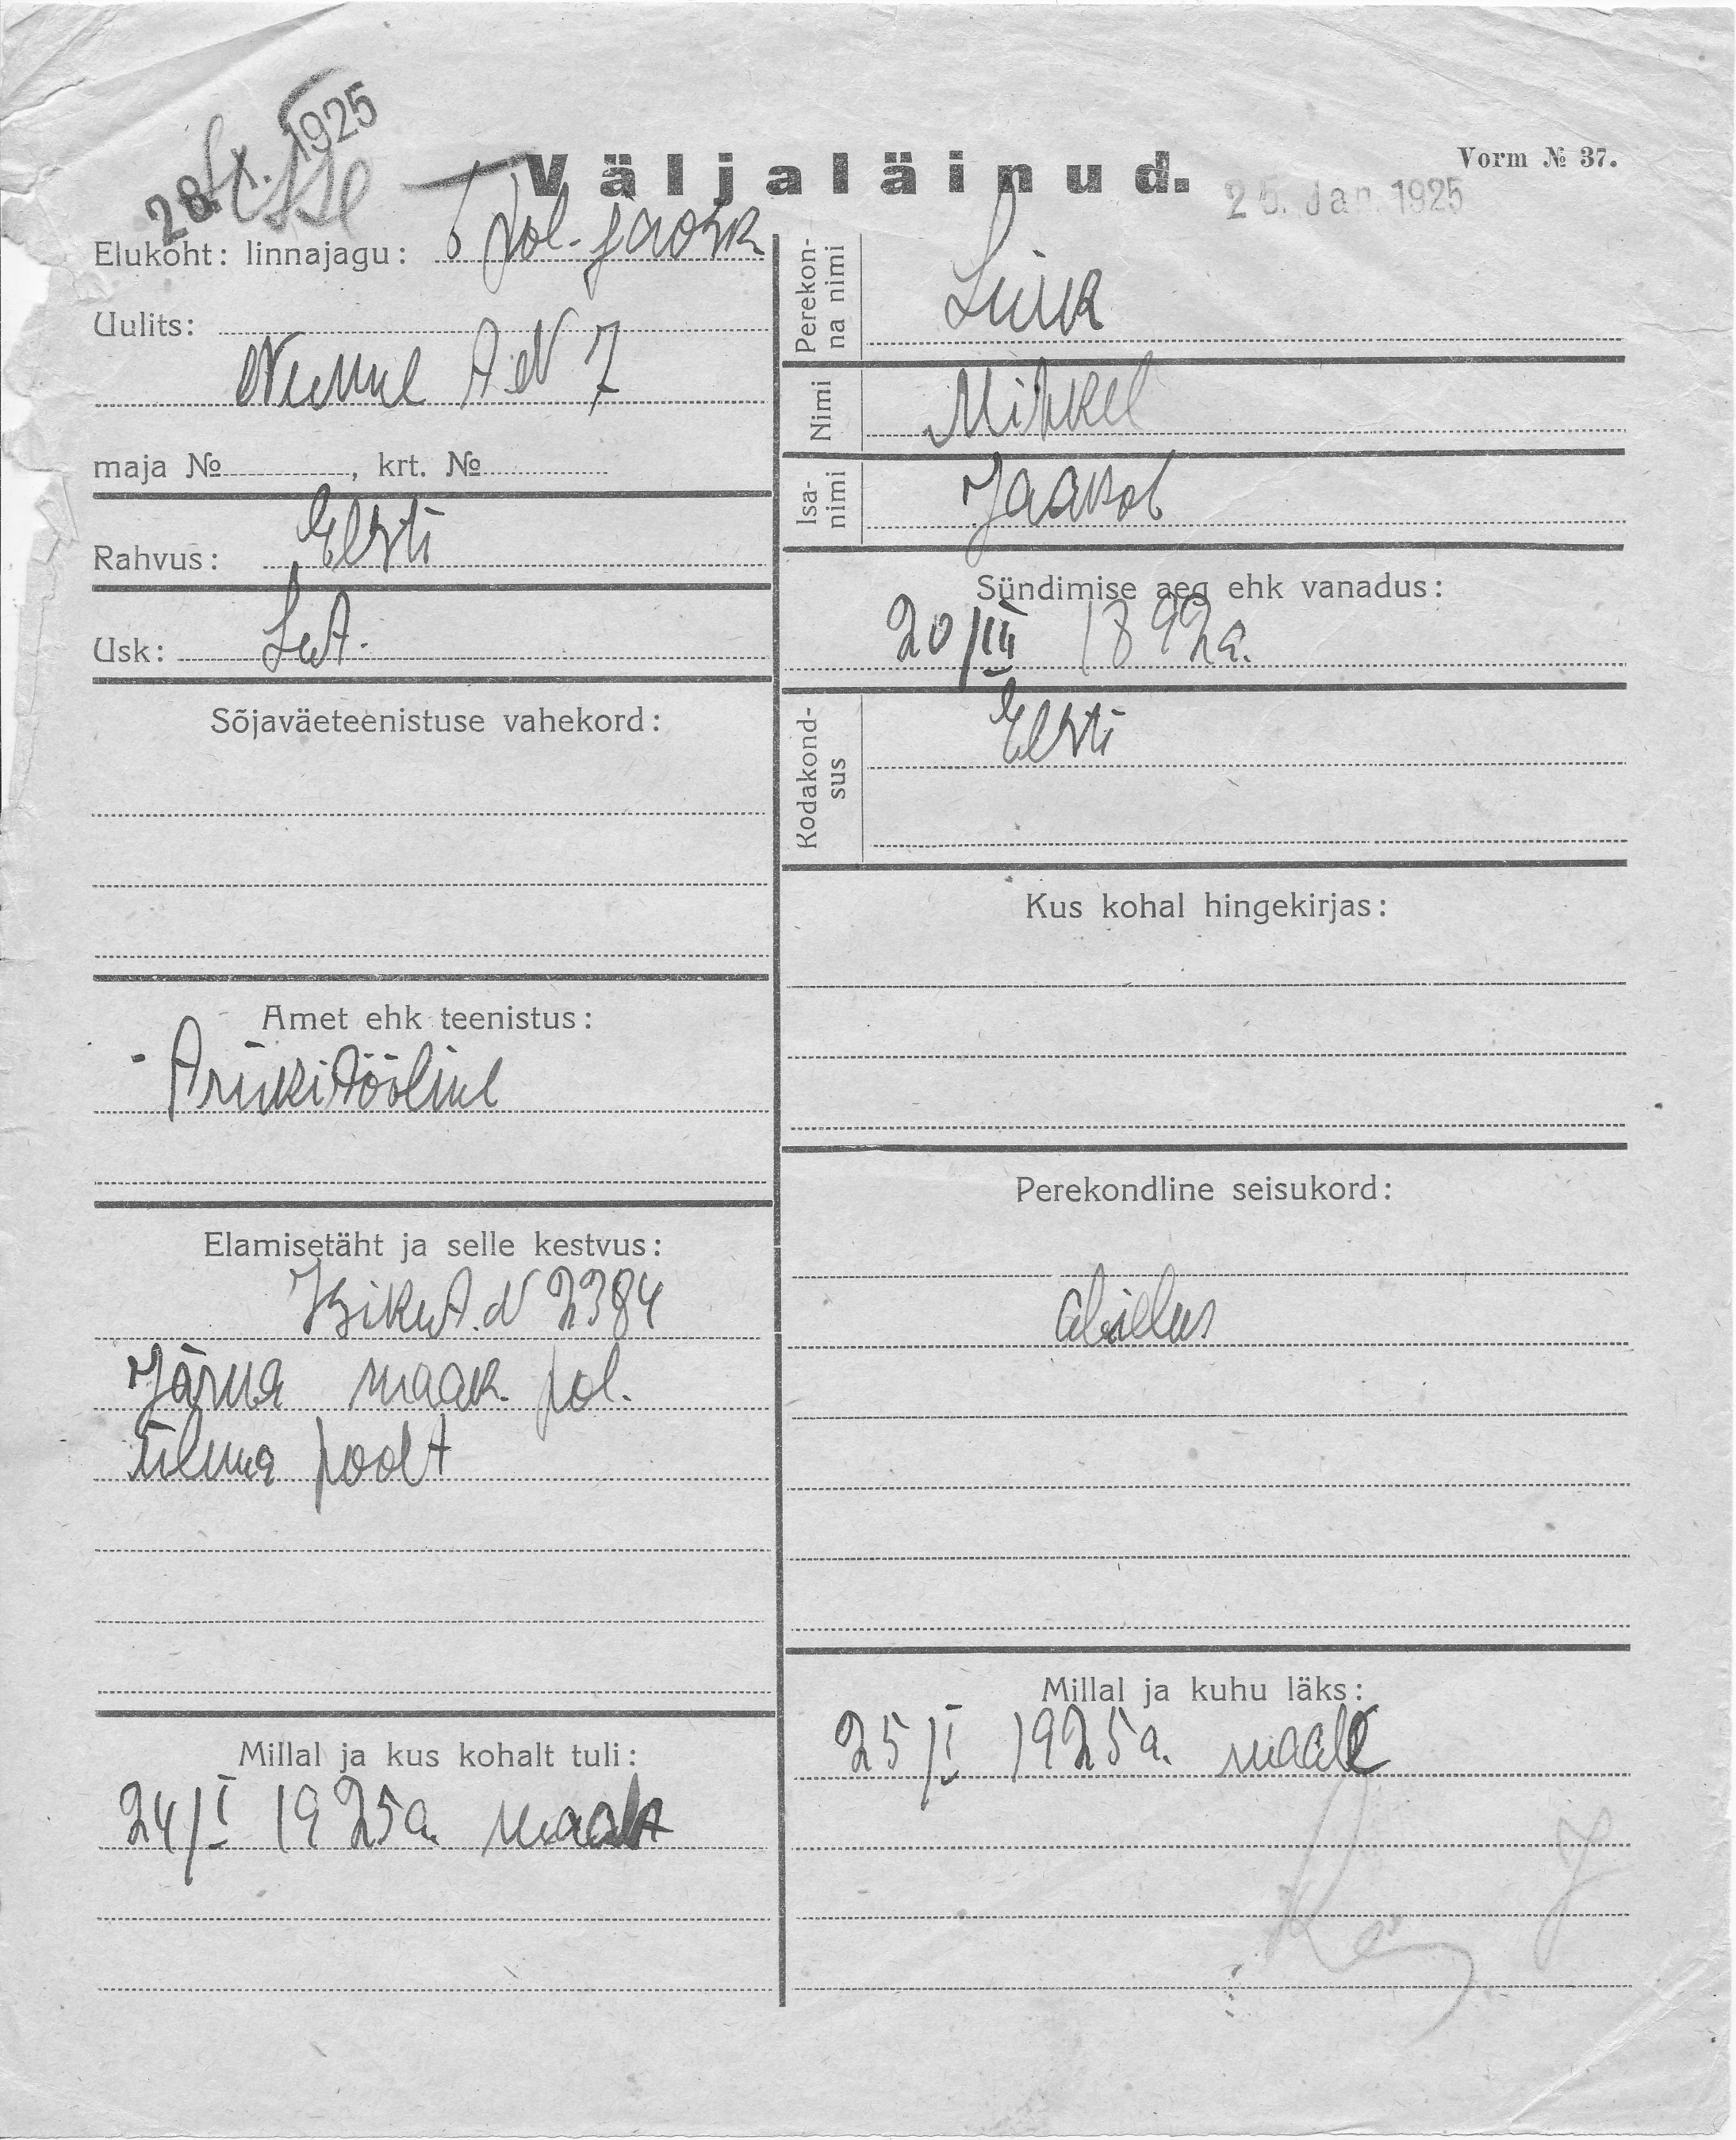 28. IX. 1925
Väljaläinud.
Vorm № 37.
25. Jan. 1925
Elukoht: linnajagu: 6 pol. jaosk
Uulits:
Numme t N 7
maja № , krt. №
Rahvus: Eesti
Usk: Lut.
Sõjaväeteenistuse vahekord:
Amet ehk teenistus:
Äriteenistööline
Elamisetäht ja selle kestvus:
Isikut. N 2384
Järva maak. pol.
ülema poolt
Millal ja kus kohalt tuli:
24/I 1925a. maalt
Perekon-
na nimi
Nimi Mihkel
Isa-
nimi Jaakob
Sündimise aeg ehk vanadus:
20/III 1892a.
Kodakond-
sus Eesti
Kus kohal hingekirjas:
Perekondline seisukord:
abielus
Millal ja kuhu läks:
25/I 1925a. maale